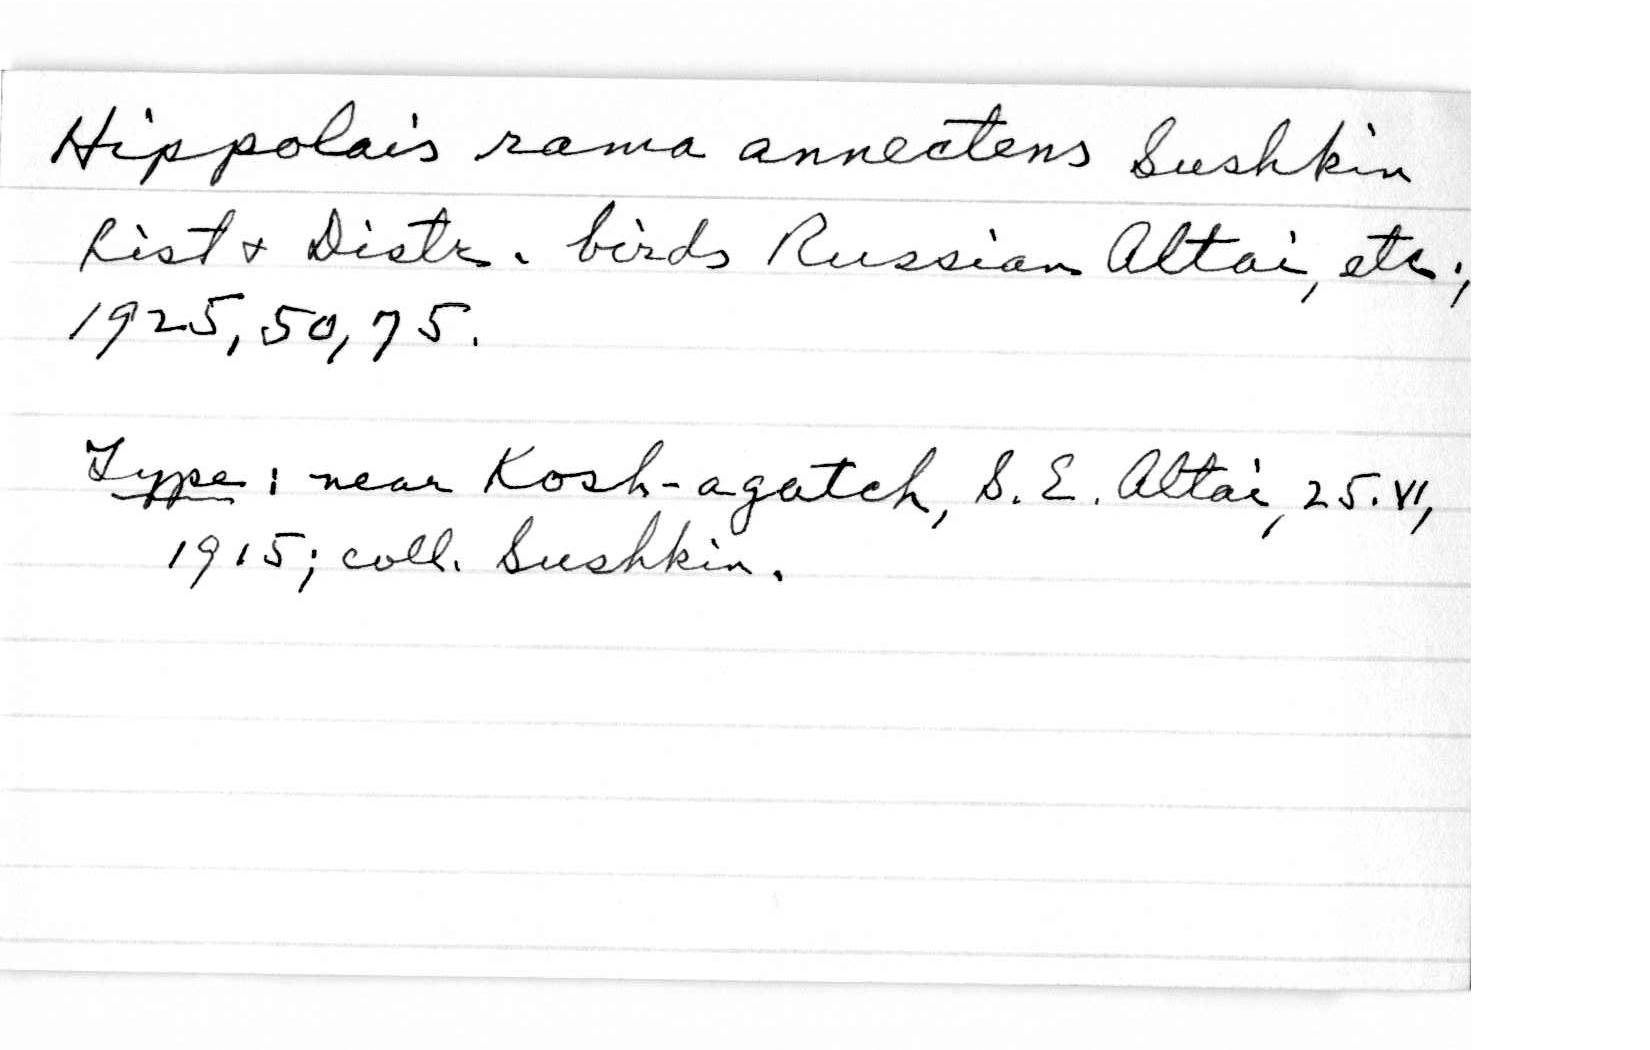 Hippolais rama annectens Sushkin
List & Distr. birds Russian Altai, etc.,
1925, 50, 75.
Type: near Kosh-agatch, S.E. Altai, 25.VI,
1915; coll. Sushkin.